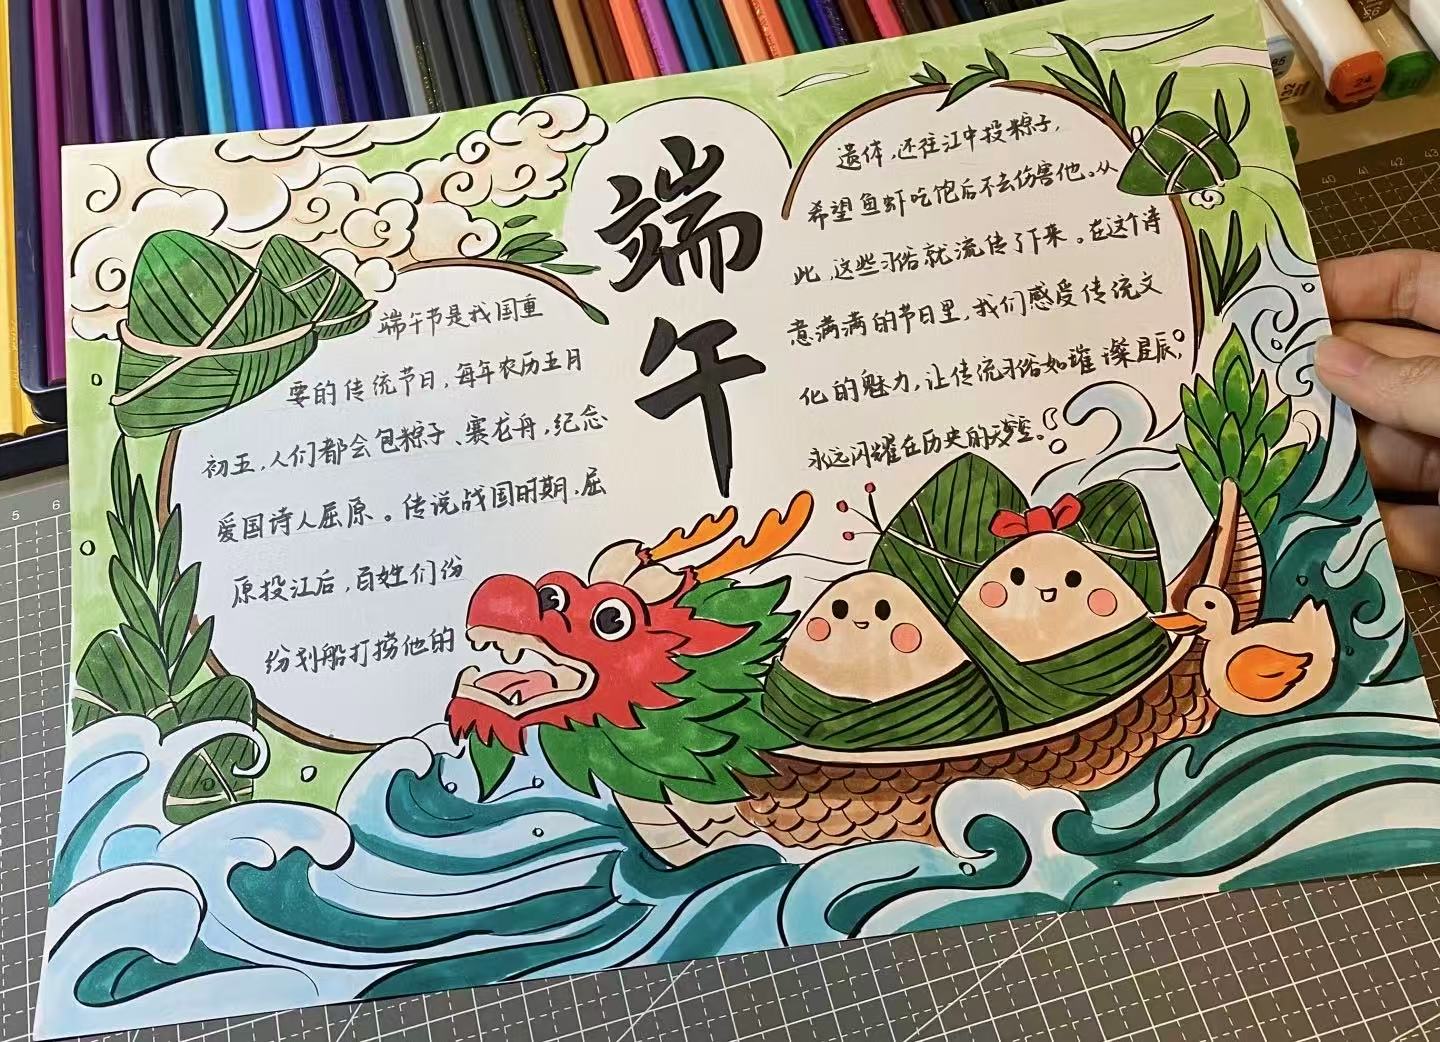 端午
端午节是我国重
要的传统节日,每年农历五月
初五,人们都会包粽子、赛龙舟,纪念
爱国诗人屈原。传说战国时期,屈
原投江后,百姓们纷
纷划船打捞他的
遗体,还往江中投粽子,
希望鱼虾吃饱后不去伤害他。从
此,这些习俗就流传了下来。在这个诗
意满满的节日里,我们感受传统文
化的魅力,让传统习俗如璀璨星辰,
永远闪耀在历史的
5
6
40
41
42
43